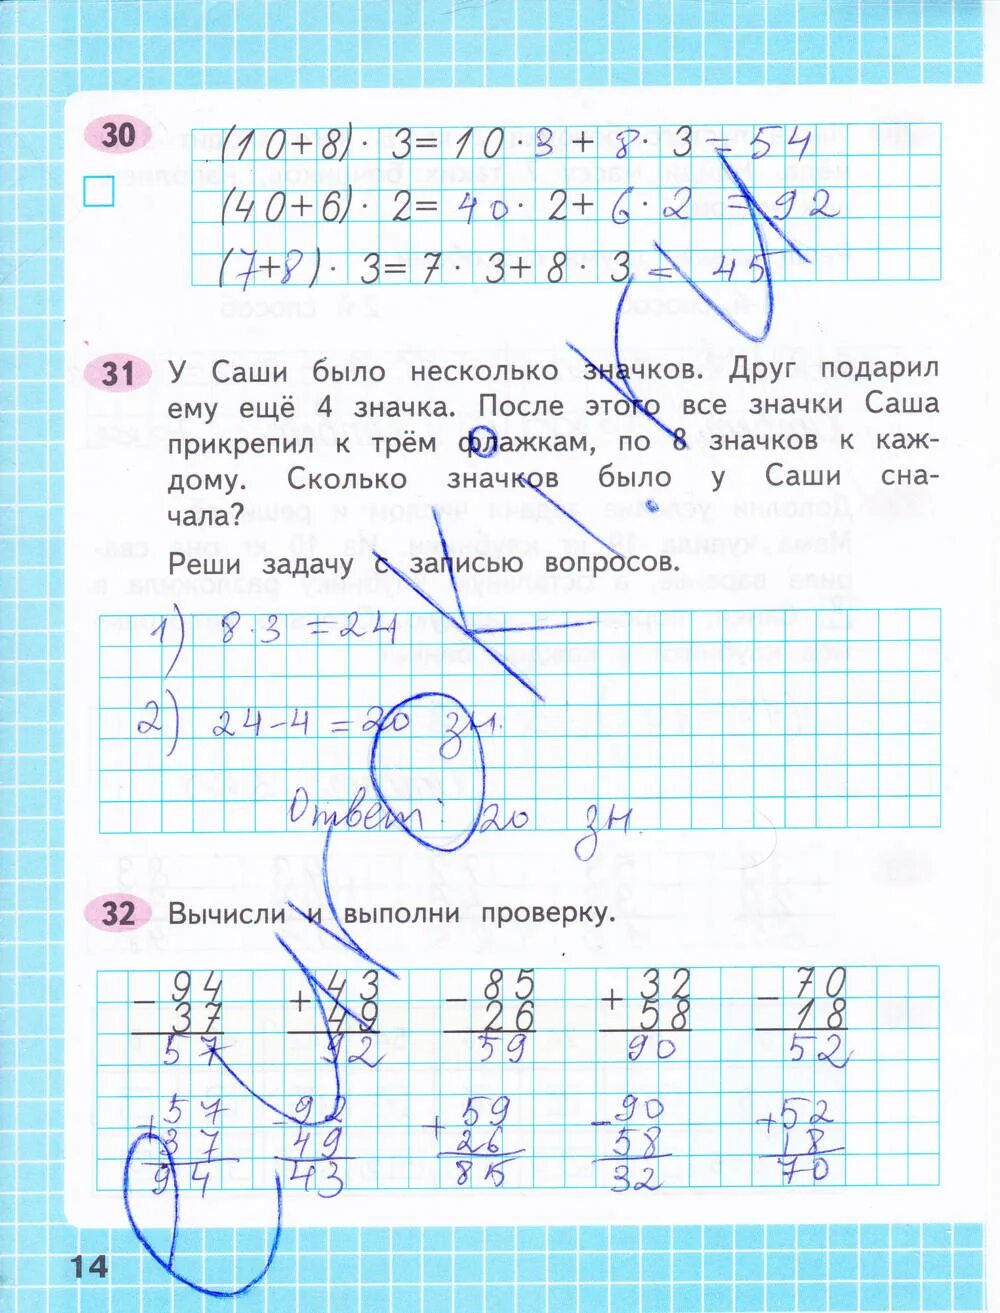 30
(10+8)·3=10·3+8·3=54
(40+6)·2=40·2+6·2=92
(7+8)·3=7·3+8·3=45
31 У Саши было несколько значков. Друг подарил
ему ещё 4 значка. После этого все значки Саша
прикрепил к трём флажкам, по 8 значков к каж-
дому. Сколько значков было у Саши сна-
чала?
Реши задачу с записью вопросов.
1) 8·3=24
2) 24-4=20 зн.
Ответ: 20 зн.
32 Вычисли и выполни проверку.
-94 +43 -85 +32 -70
37 49 26 58 18
57 92 59 90 52
+57 -92 +59 -90 +52
37 49 26 58 18
94 43 85 32 70
14